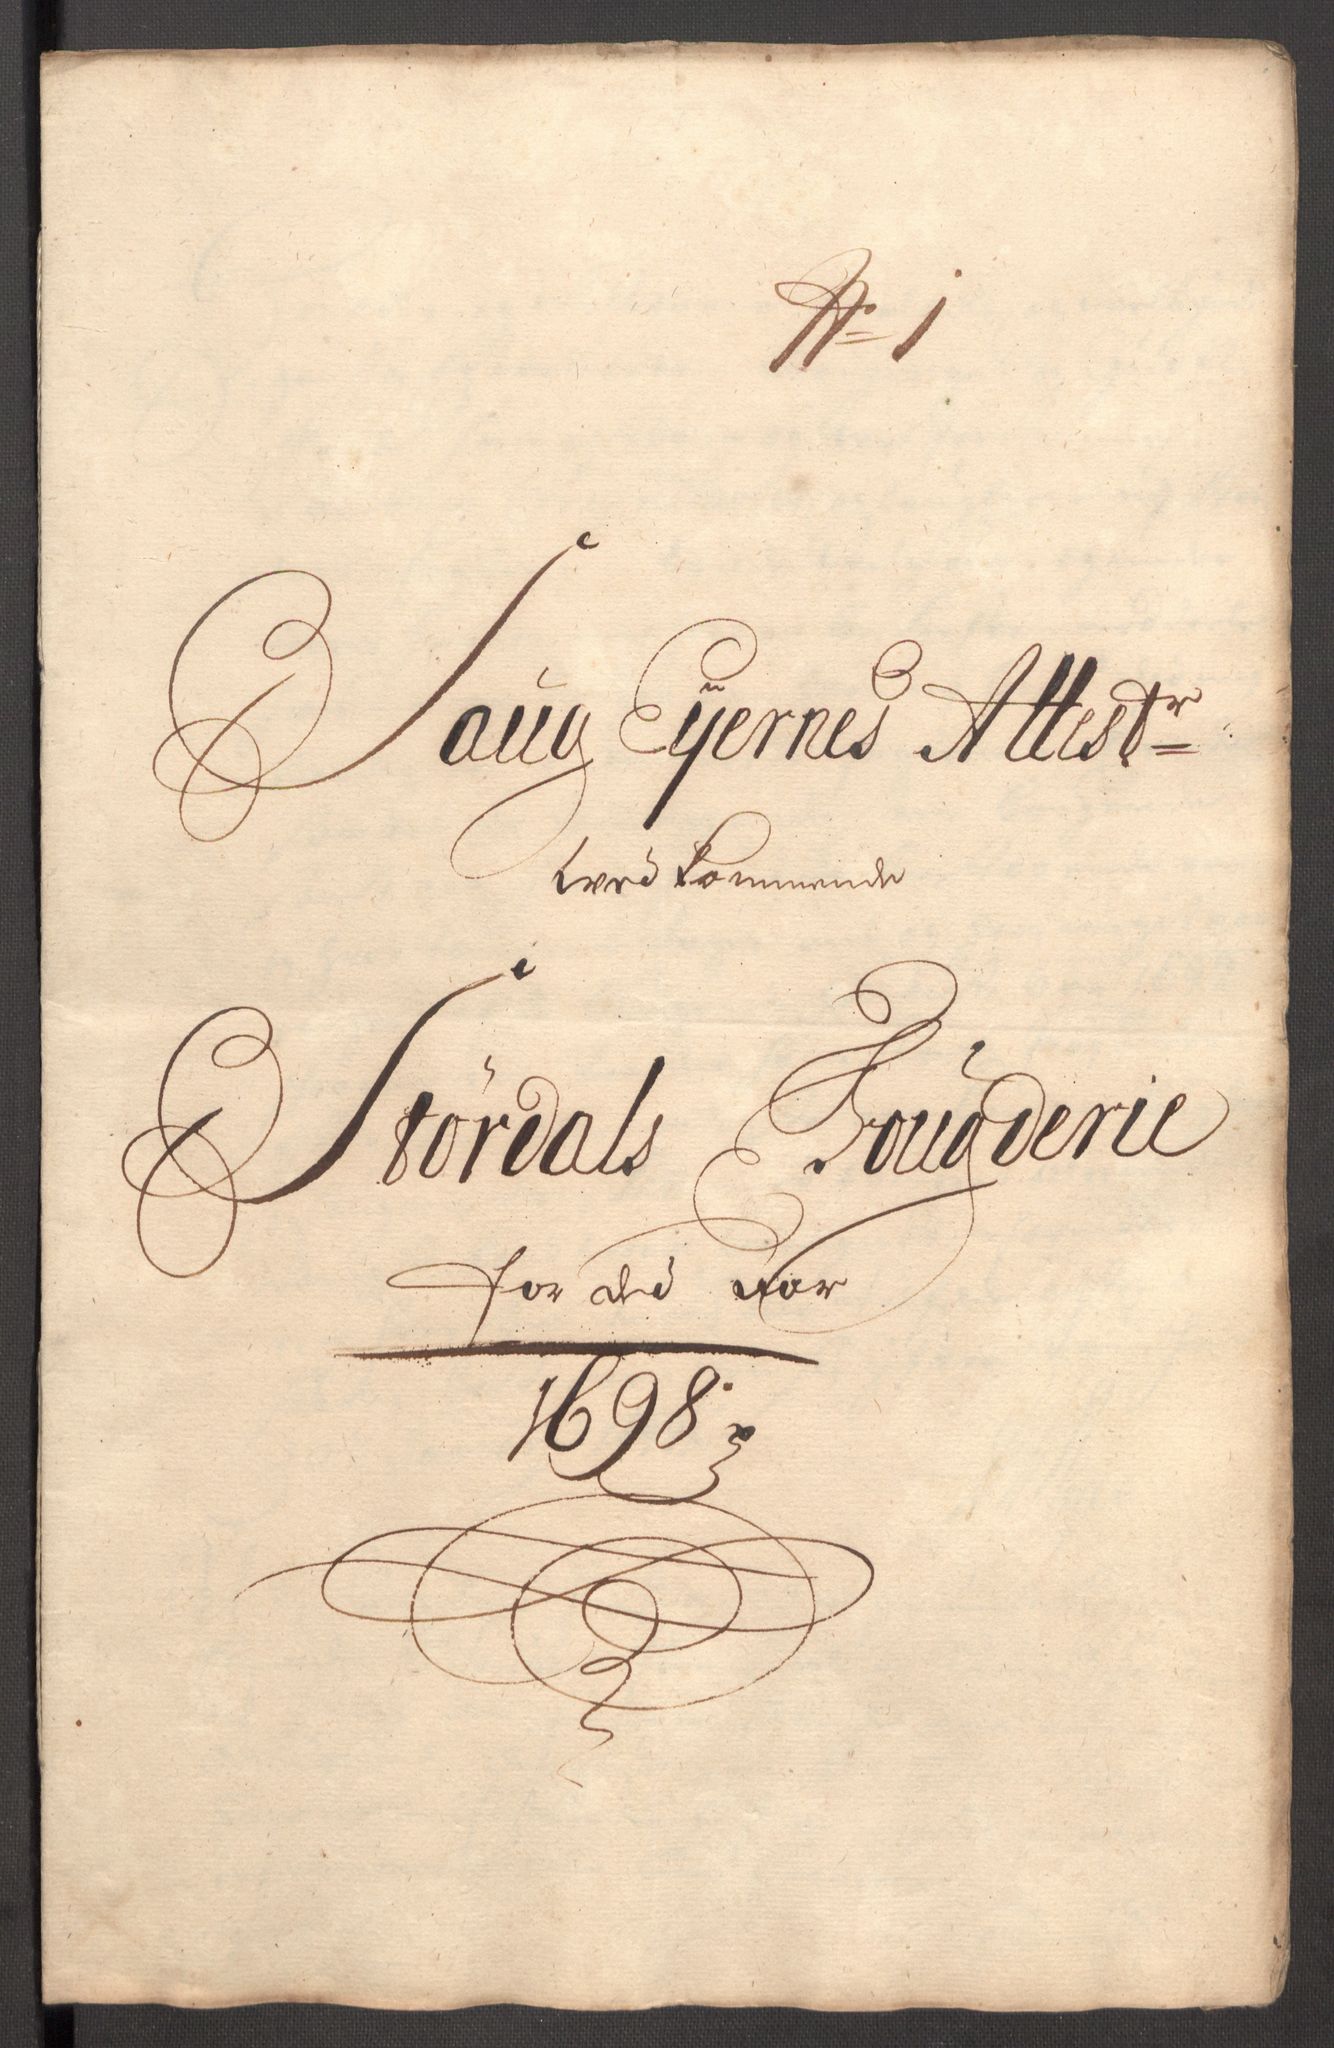 No 1
Saug Eÿernes Attestr
wed kommende
Stördals Fougderie
for ded Aar
1698